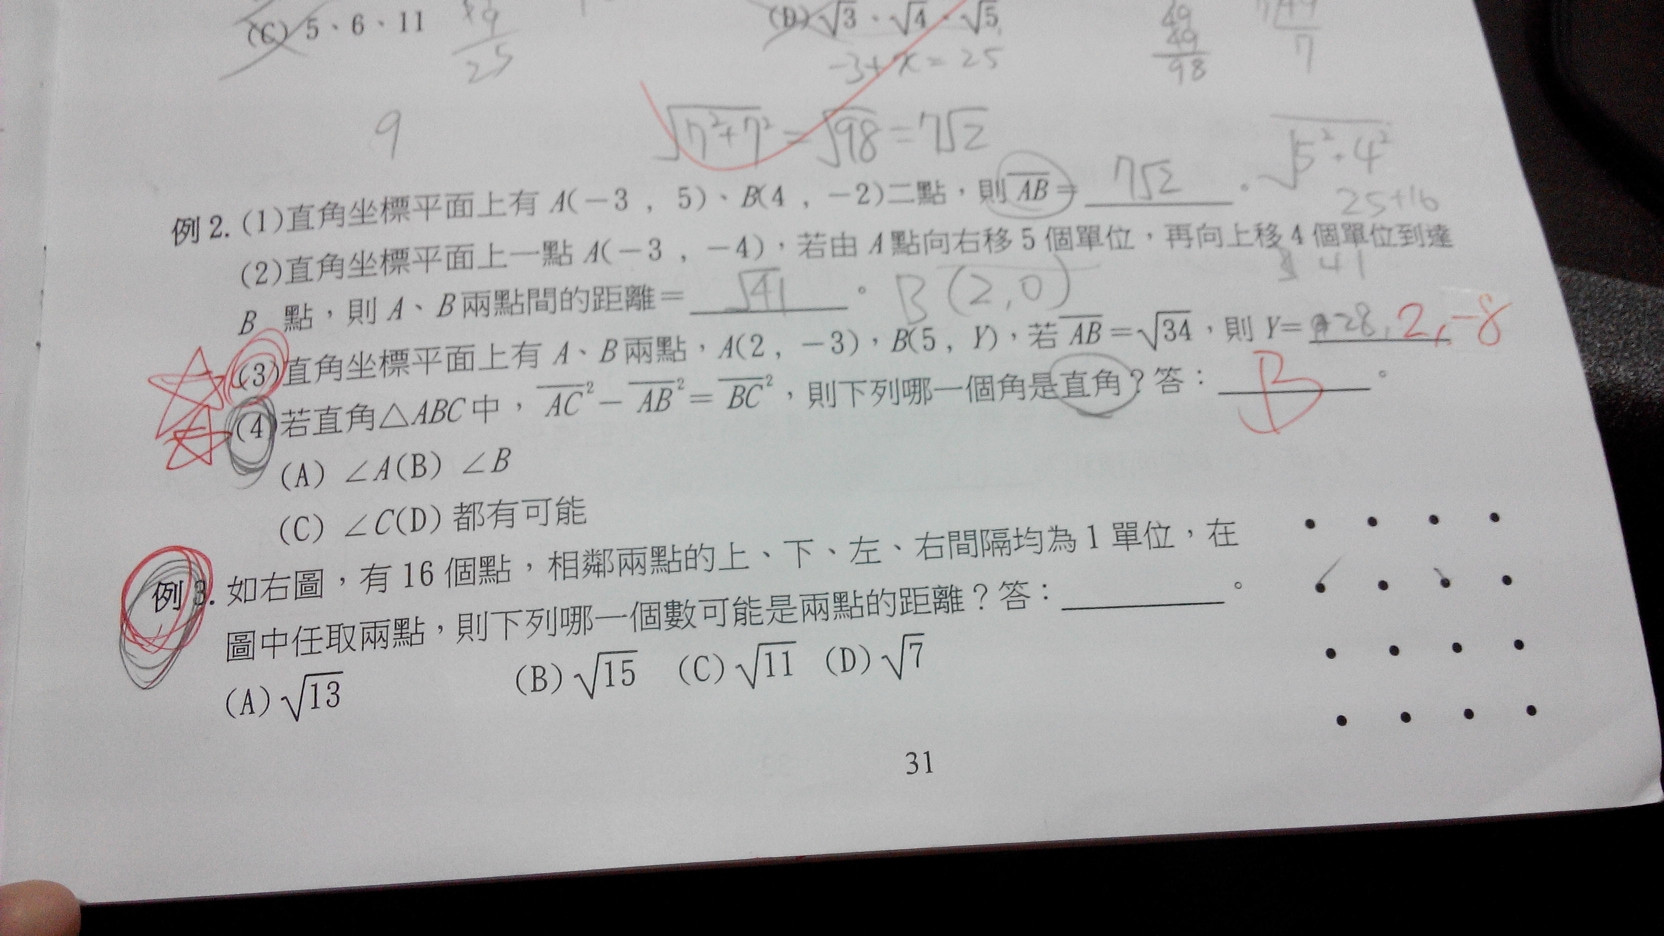 (C) 5、6、11
(D) √3、√4、√5
49
49
98
7
25
-3+x=25
9
√7²+7² = √98 = 7√2
√5²+4²
25+16
41
例 2. (1)直角坐標平面上有 A(-3 , 5)、B(4 , -2)二點，則 AB = 7√2 。
(2)直角坐標平面上一點 A(-3 , -4)，若由 A 點向右移 5 個單位，再向上移 4 個單位到達
B 點，則 A、B 兩點間的距離＝ √41 。 B (2,0)
(3)直角坐標平面上有 A、B 兩點，A(2 , -3)，B(5 , Y)，若 AB = √34，則 Y= 28, 2, -8
(4)若直角△ABC 中，AC² - AB² = BC²，則下列哪一個角是直角？答： B 。
(A) ∠A(B) ∠B
(C) ∠C(D) 都有可能
例 3. 如右圖，有 16 個點，相鄰兩點的上、下、左、右間隔均為 1 單位，在
圖中任取兩點，則下列哪一個數可能是兩點的距離？答：＿＿＿＿。
(A) √13 (B) √15 (C) √11 (D) √7
31